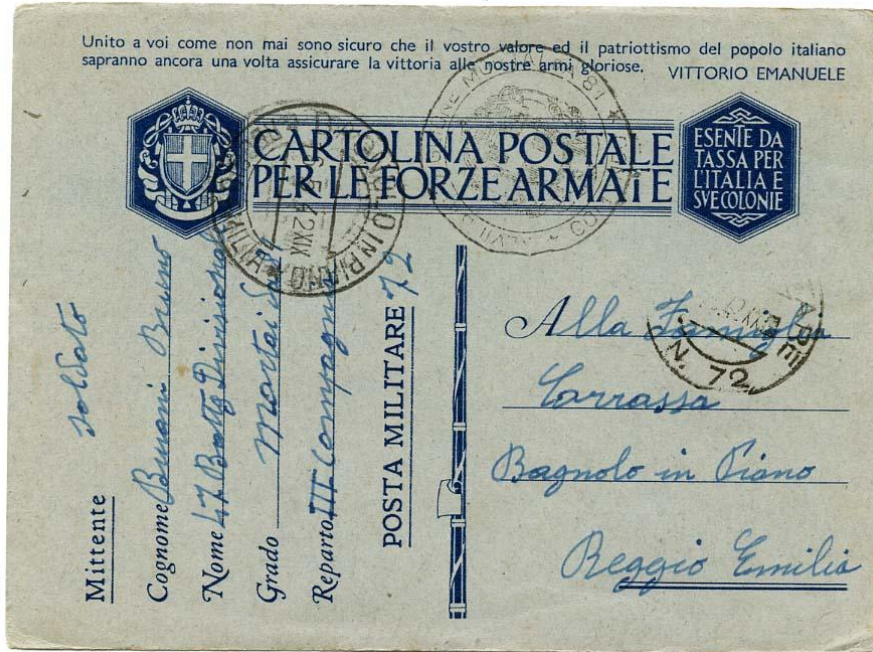 Unito a voi come non mai sono sicuro che il vostro valore ed il patriottismo del popolo italiano
sapranno ancora una volta assicurare la vittoria alle nostre armi gloriose. VITTORIO EMANUELE
CARTOLINA POSTALE
PER LE FORZE ARMATE
ESENTE DA
TASSA PER
L'ITALIA E
SVE COLONIE
Mittente soldato
Cognome Bruno
Nome 47 Batt Divisionale
Grado Mortai
Reparto III Compagnia
POSTA MILITARE 72
Alla Famiglia
Carrassa
Bagnolo in Piano
Reggio Emilia
N. 72